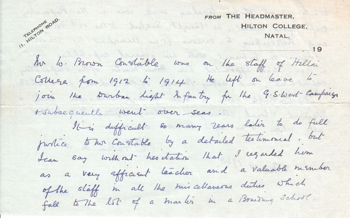 TELEPHONE
11, HILTON ROAD.
FROM THE HEADMASTER,
HILTON COLLEGE,
NATAL,
19
Mr W. Brown Constable was on the staff of Hilton
College from 1912 to 1914. He left on leave to
join the Durban Light Infantry for the G.S. West Campaign
& subsequently went over seas.
It is difficult so many years later to do full
justice to Mr Constable by a detailed testimonial, but
I can say without hesitation that I regarded him
as a very efficient teacher and a valuable member
of the staff in all the miscellaneous duties which
fall to the lot of a master in a Boarding School